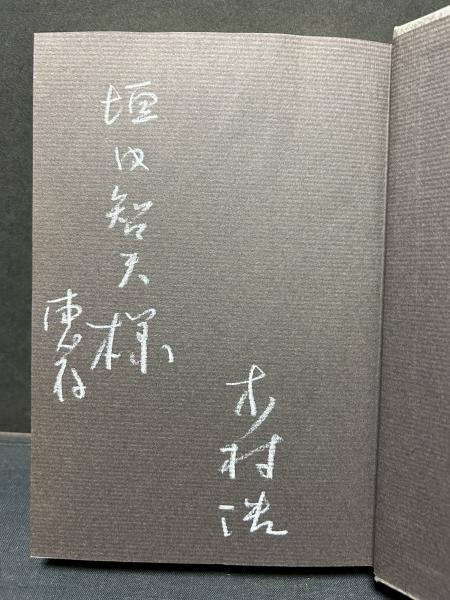 木村浩
垣内智天様
恵存